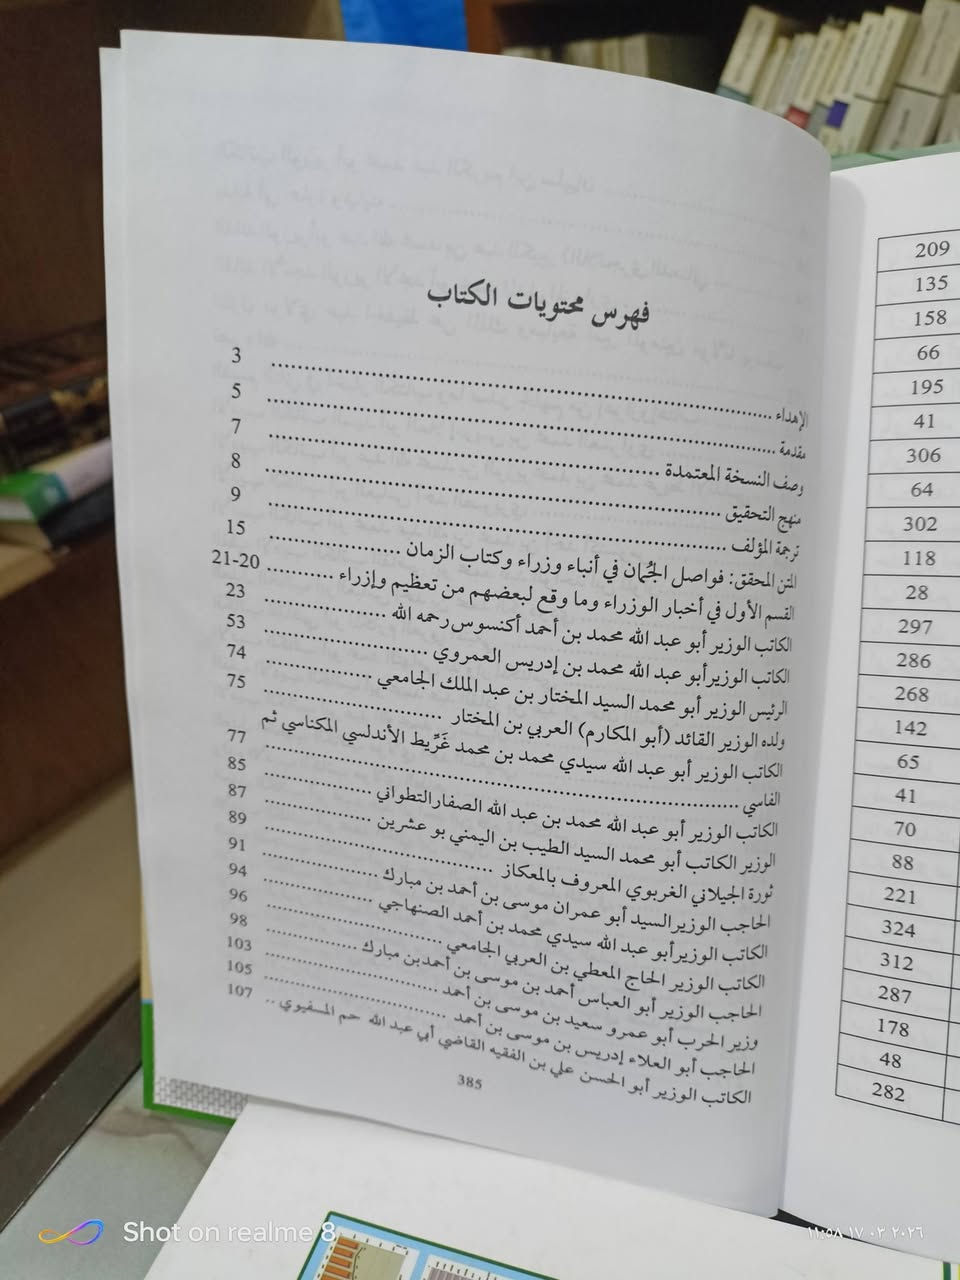 فهرس محتويات الكتاب
الإهداء ........ 3
مقدمة ........ 5
وصف النسخة المعتمدة ........ 7
منهج التحقيق ........ 8
ترجمة المؤلف ........ 9
المتن المحقق: فواصل الجُمان في أنباء وزراء وكتاب الزمان ........ 15
القسم الأول في أخبار الوزراء وما وقع لبعضهم من تعظيم وإزراء ........ 20-21
الكاتب الوزير أبو عبد الله محمد بن أحمد أكنسوس رحمه الله ........ 23
الكاتب الوزيرأبو عبد الله محمد بن إدريس العمروي ........ 53
الرئيس الوزير أبو محمد السيد المختار بن عبد الملك الجامعي ........ 74
ولده الوزير القائد (أبو المكارم) العربي بن المختار ........ 75
الكاتب الوزير أبو عبد الله سيدي محمد بن محمد غَرِّيط الأندلسي المكناسي ثم
الفاسي ........ 77
الكاتب الوزير أبو عبد الله محمد بن عبد الله الصفارالتطواني ........ 85
الوزير الكاتب أبو محمد السيد الطيب بن اليمني بو عشرين ........ 87
ثورة الجيلاني الغربوي المعروف بالمعكاز ........ 89
الحاجب الوزيرالسيد أبو عمران موسى بن أحمد بن مبارك ........ 91
الكاتب الوزيرأبو عبد الله سيدي محمد بن أحمد الصنهاجي ........ 94
الكاتب الوزير الحاج المعطي بن العربي الجامعي ........ 96
الحاجب الوزير أبو العباس أحمد بن موسى بن أحمدبن مبارك ........ 98
وزير الحرب أبو عمرو سعيد بن موسى بن أحمد ........ 103
الحاجب أبو العلاء إدريس بن موسى بن أحمد ........ 105
الكاتب الوزير أبو الحسن علي بن الفقيه القاضي أبي عبد الله حم المسفيوي .. 107
385
209
135
158
66
195
41
306
64
302
118
28
297
286
268
142
65
41
70
88
221
324
312
287
178
48
282
Shot on realme 8
٢٠٢٦ ٠٣ ١٧ ١١:٥٨